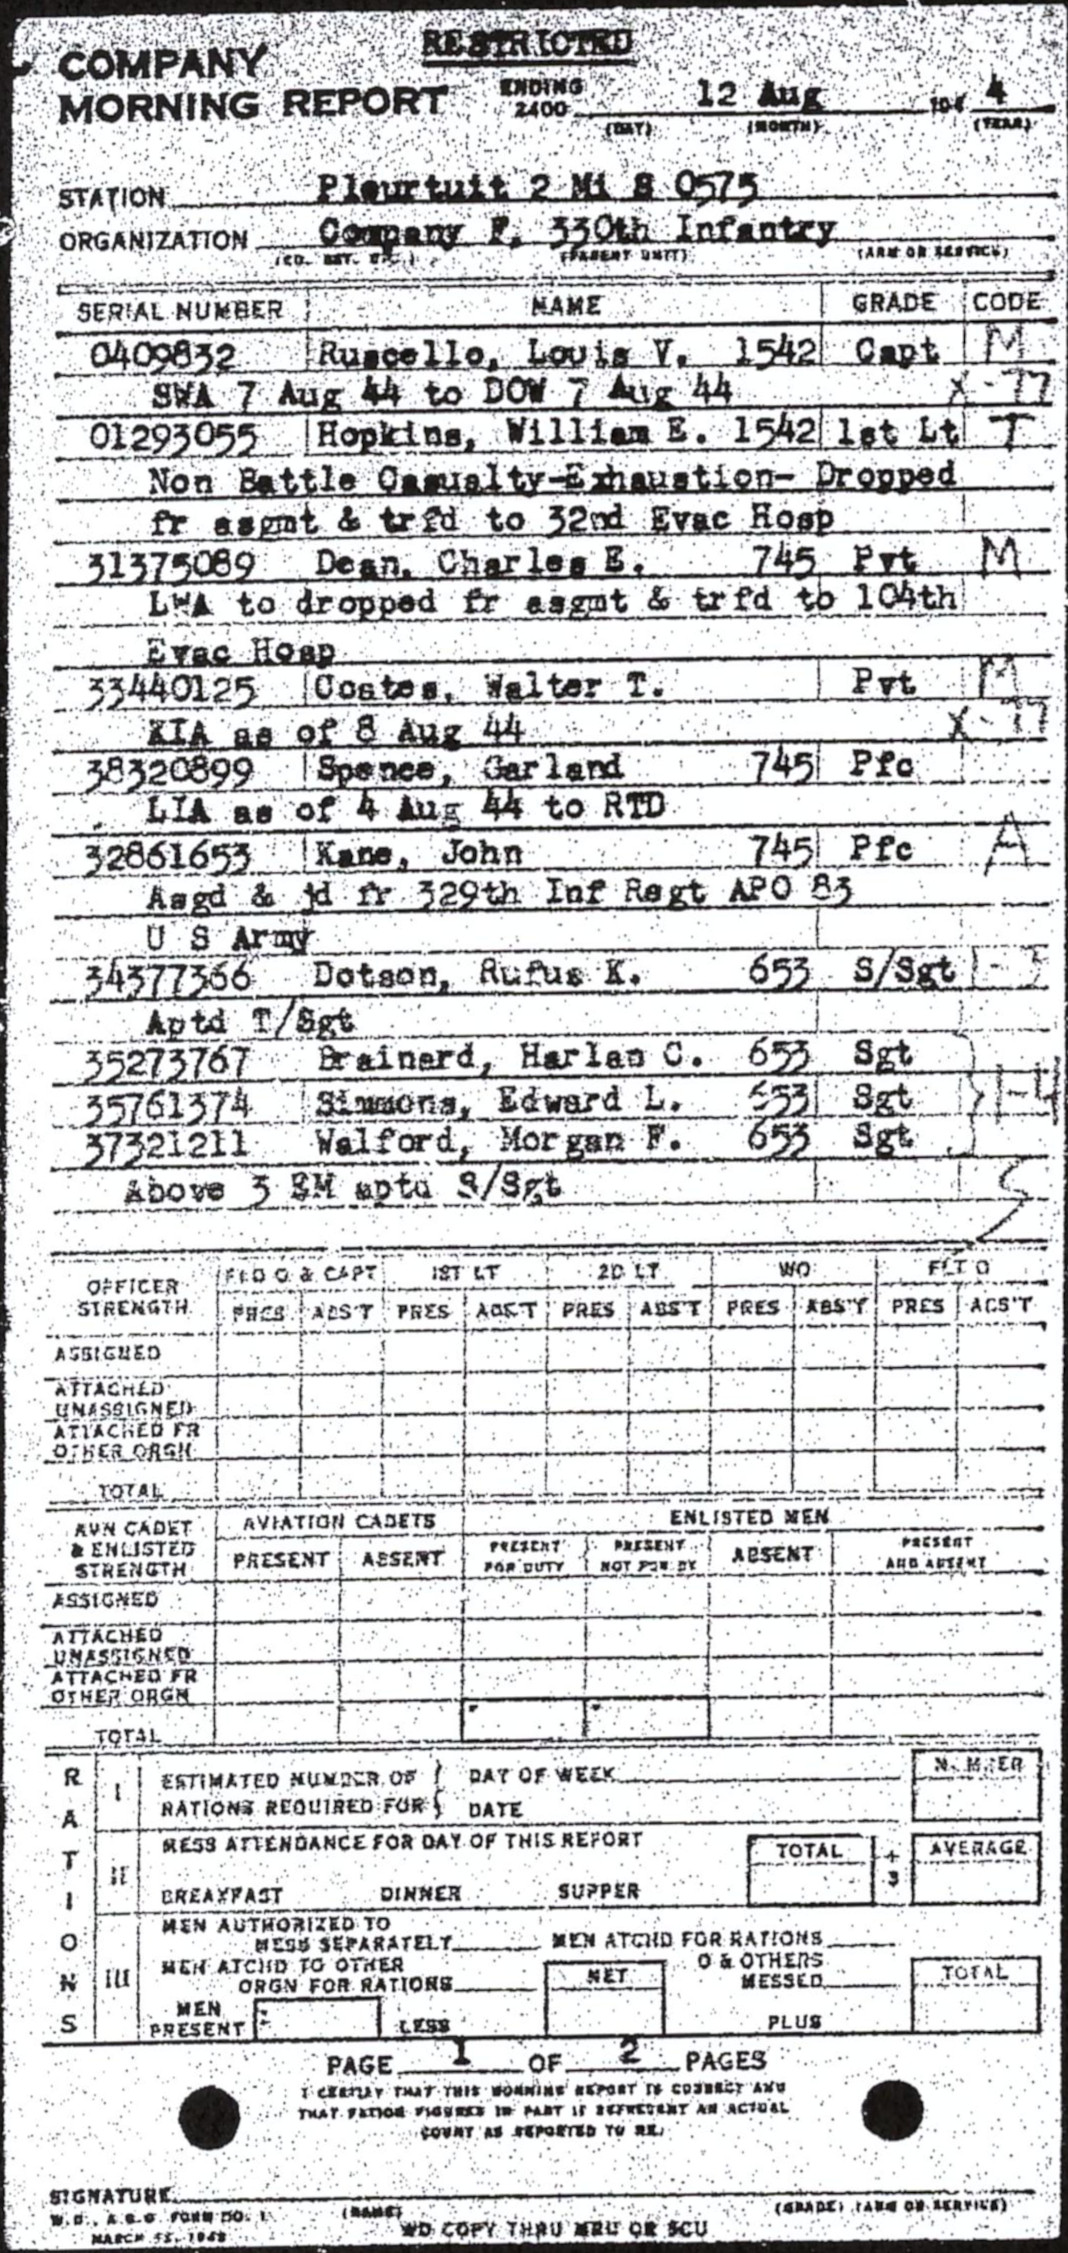 RESTRICTED
COMPANY
MORNING REPORT ENDING 2400 12 Aug 194 4
(DAY) (MONTH) (YEAR)
STATION Pleurtuit 2 Mi S 0575
ORGANIZATION Company F, 330th Infantry
(CO. BTY. ETC.) (PARENT UNIT) (ARM OR SERVICE)
SERIAL NUMBER NAME GRADE CODE
0409832 Ruscello, Louis V. 1542 Capt M
SWA 7 Aug 44 to DOW 7 Aug 44 X-77
01293055 Hopkins, William E. 1542 1st Lt T
Non Battle Casualty-Exhaustion- Dropped
fr asgmt & trfd to 32nd Evac Hosp
31375089 Dean, Charles E. 745 Pvt M
LWA to dropped fr asgmt & trfd to 104th
Evac Hosp
33440125 Coates, Walter T. Pvt M
KIA as of 8 Aug 44 X-77
38320899 Spence, Garland 745 Pfc
LIA as of 4 Aug 44 to RTD
32861653 Kane, John 745 Pfc A
Asgd & jd fr 329th Inf Regt APO 83
U S Army
34377366 Dotson, Rufus K. 653 S/Sgt 1-3
Aptd T/Sgt
35273767 Brainerd, Harlan C. 653 Sgt
35761374 Simmons, Edward L. 653 Sgt 1-4
37321211 Walford, Morgan F. 653 Sgt
Above 3 EM aptd S/Sgt
OFFICER STRENGTH FLD O & CAPT 1ST LT 2D LT WO FLT O
PRES ABS'T PRES ABS'T PRES ABS'T PRES ABS'T PRES ABS'T
ASSIGNED
ATTACHED UNASSIGNED
ATTACHED FR OTHER ORGN
TOTAL
AVN CADET & ENLISTED STRENGTH AVIATION CADETS ENLISTED MEN
PRESENT ABSENT PRESENT FOR DUTY PRESENT NOT FOR DY ABSENT PRESENT AND ABSENT
ASSIGNED
ATTACHED UNASSIGNED
ATTACHED FR OTHER ORGN
TOTAL
RATIONS
I ESTIMATED NUMBER OF RATIONS REQUIRED FOR DAY OF WEEK DATE NUMBER
II MESS ATTENDANCE FOR DAY OF THIS REPORT TOTAL ÷ 3 AVERAGE
BREAKFAST DINNER SUPPER
III MEN AUTHORIZED TO MESS SEPARATELY MEN ATCHD FOR RATIONS
MEN ATCHD TO OTHER ORGN FOR RATIONS NET O & OTHERS MESSED TOTAL
MEN PRESENT LESS PLUS
PAGE 1 OF 2 PAGES
I CERTIFY THAT THIS MORNING REPORT IS CORRECT AND
THAT RATION FIGURES IN PART II REPRESENT AN ACTUAL
COUNT AS REPORTED TO ME.
SIGNATURE
(NAME) (GRADE) (ARM OR SERVICE)
W.D., A.G.O. FORM NO. 1
WD COPY THRU MRU OR SCU